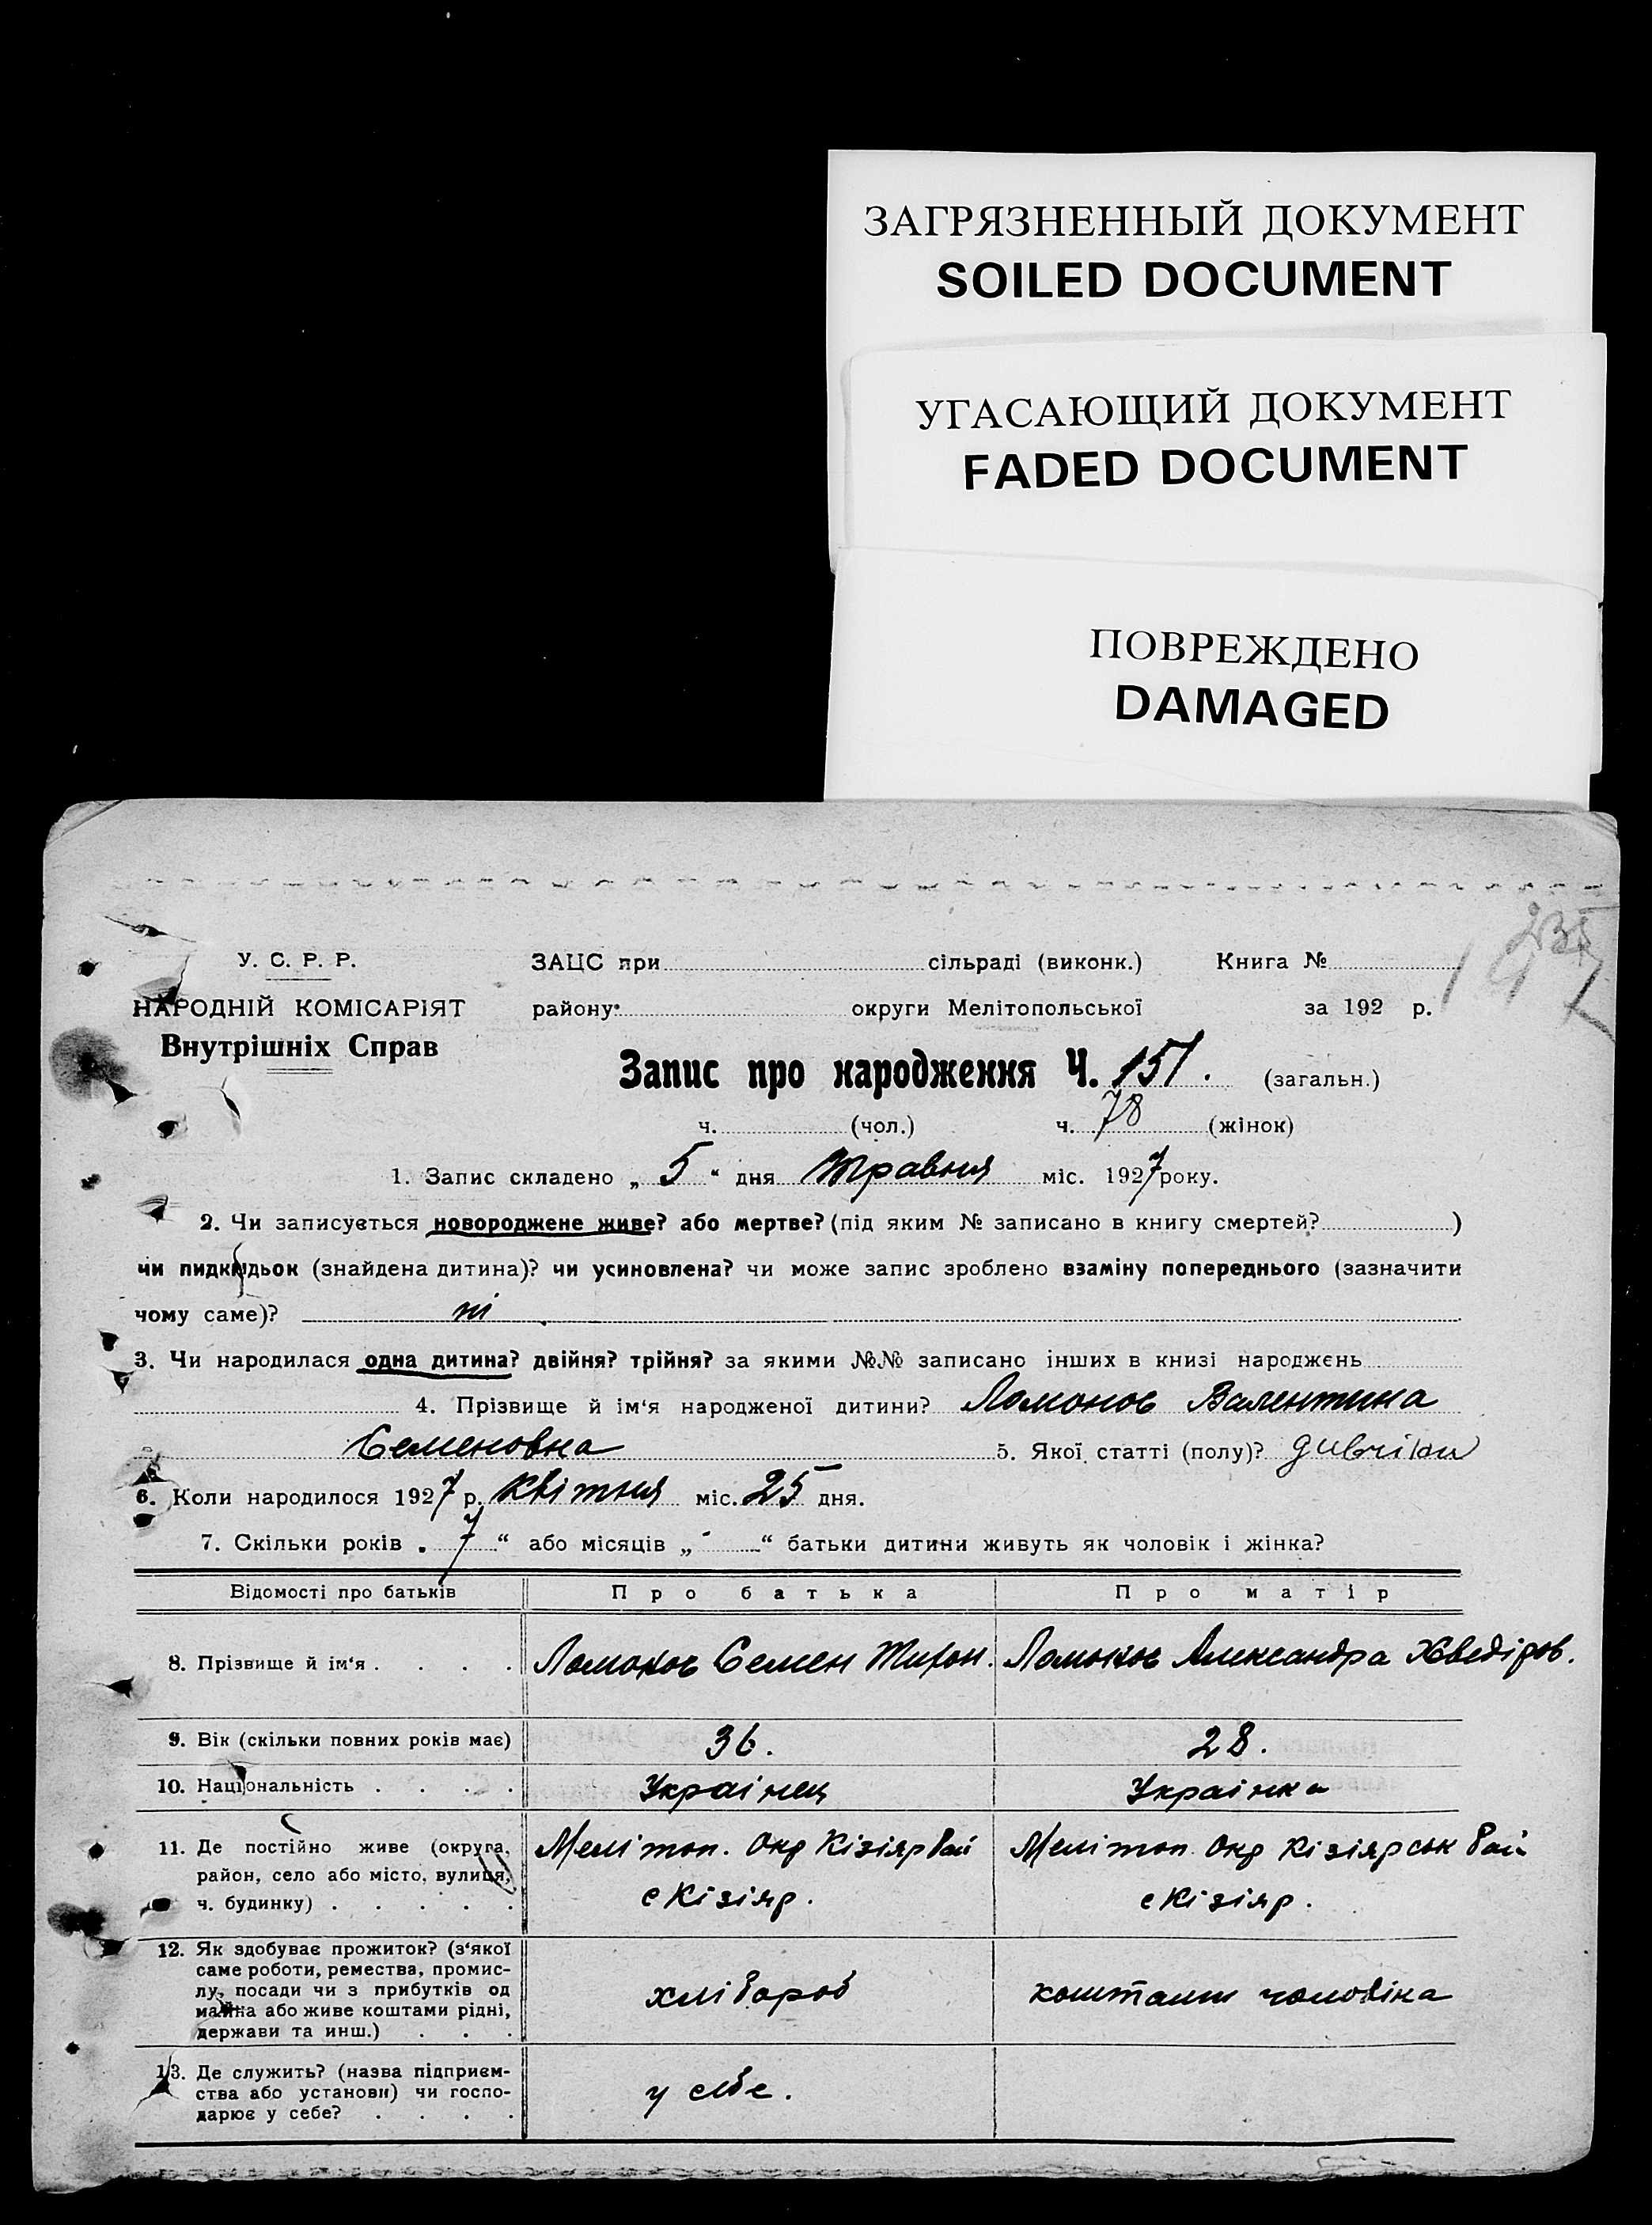 ЗАГРЯЗНЕННЫЙ ДОКУМЕНТ
SOILED DOCUMENT
УГАСАЮЩИЙ ДОКУМЕНТ
FADED DOCUMENT
ПОВРЕЖДЕНО
DAMAGED
235
У. С. Р. Р. ЗАЦС при сільраді (виконк.) Книга №
НАРОДНІЙ КОМІСАРІЯТ району округи Мелітопольської за 192 р.
Внутрішніх Справ
Запис про народження Ч. 151. (загальн.)
ч. (чол.) ч. 78 (жінок)
1. Запис складено „ 5 “ дня Травня міс. 1927 року.
2. Чи записується новороджене живе? або мертве? (під яким № записано в книгу смертей? )
чи пидкидьок (знайдена дитина)? чи усиновлена? чи може запис зроблено взаміну попереднього (зазначити
чому саме)? ні
3. Чи народилася одна дитина? двійня? трійня? за якими №№ записано інших в книзі народжень
4. Прізвище й ім‘я народженої дитини? Ломонос Валентина
Семеновна 5. Якої статті (полу)?
6. Коли народилося 1927 р. Квітня міс. 25 дня.
7. Скільки років „ 7 “ або місяців „ - “ батьки дитини живуть як чоловік і жінка?
Відомості про батьків Про батька Про матір
8. Прізвище й ім‘я . . . . Ломонос Семен Тихон. Ломонос Александра Хведіров.
9. Вік (скільки повних років має) 36. 28.
10. Національність . . . . Українец Українка
11. Де постійно живе (округа, Мелітоп. Окр Кізіяр Рай Мелітоп. Окр Кізіярськ Рай
район, село або місто, вулиця, с Кізіяр. с Кізіяр.
ч. будинку) . . . . .
12. Як здобуває прожиток? (з‘якої
саме роботи, ремества, промис-
лу, посади чи з прибутків од хлібороб коштами чоловіка
майна або живе коштами рідні,
держави та инш.) . . .
13. Де служить? (назва підприєм-
ства або установи) чи госпо- у себе.
дарює у себе? . . . .